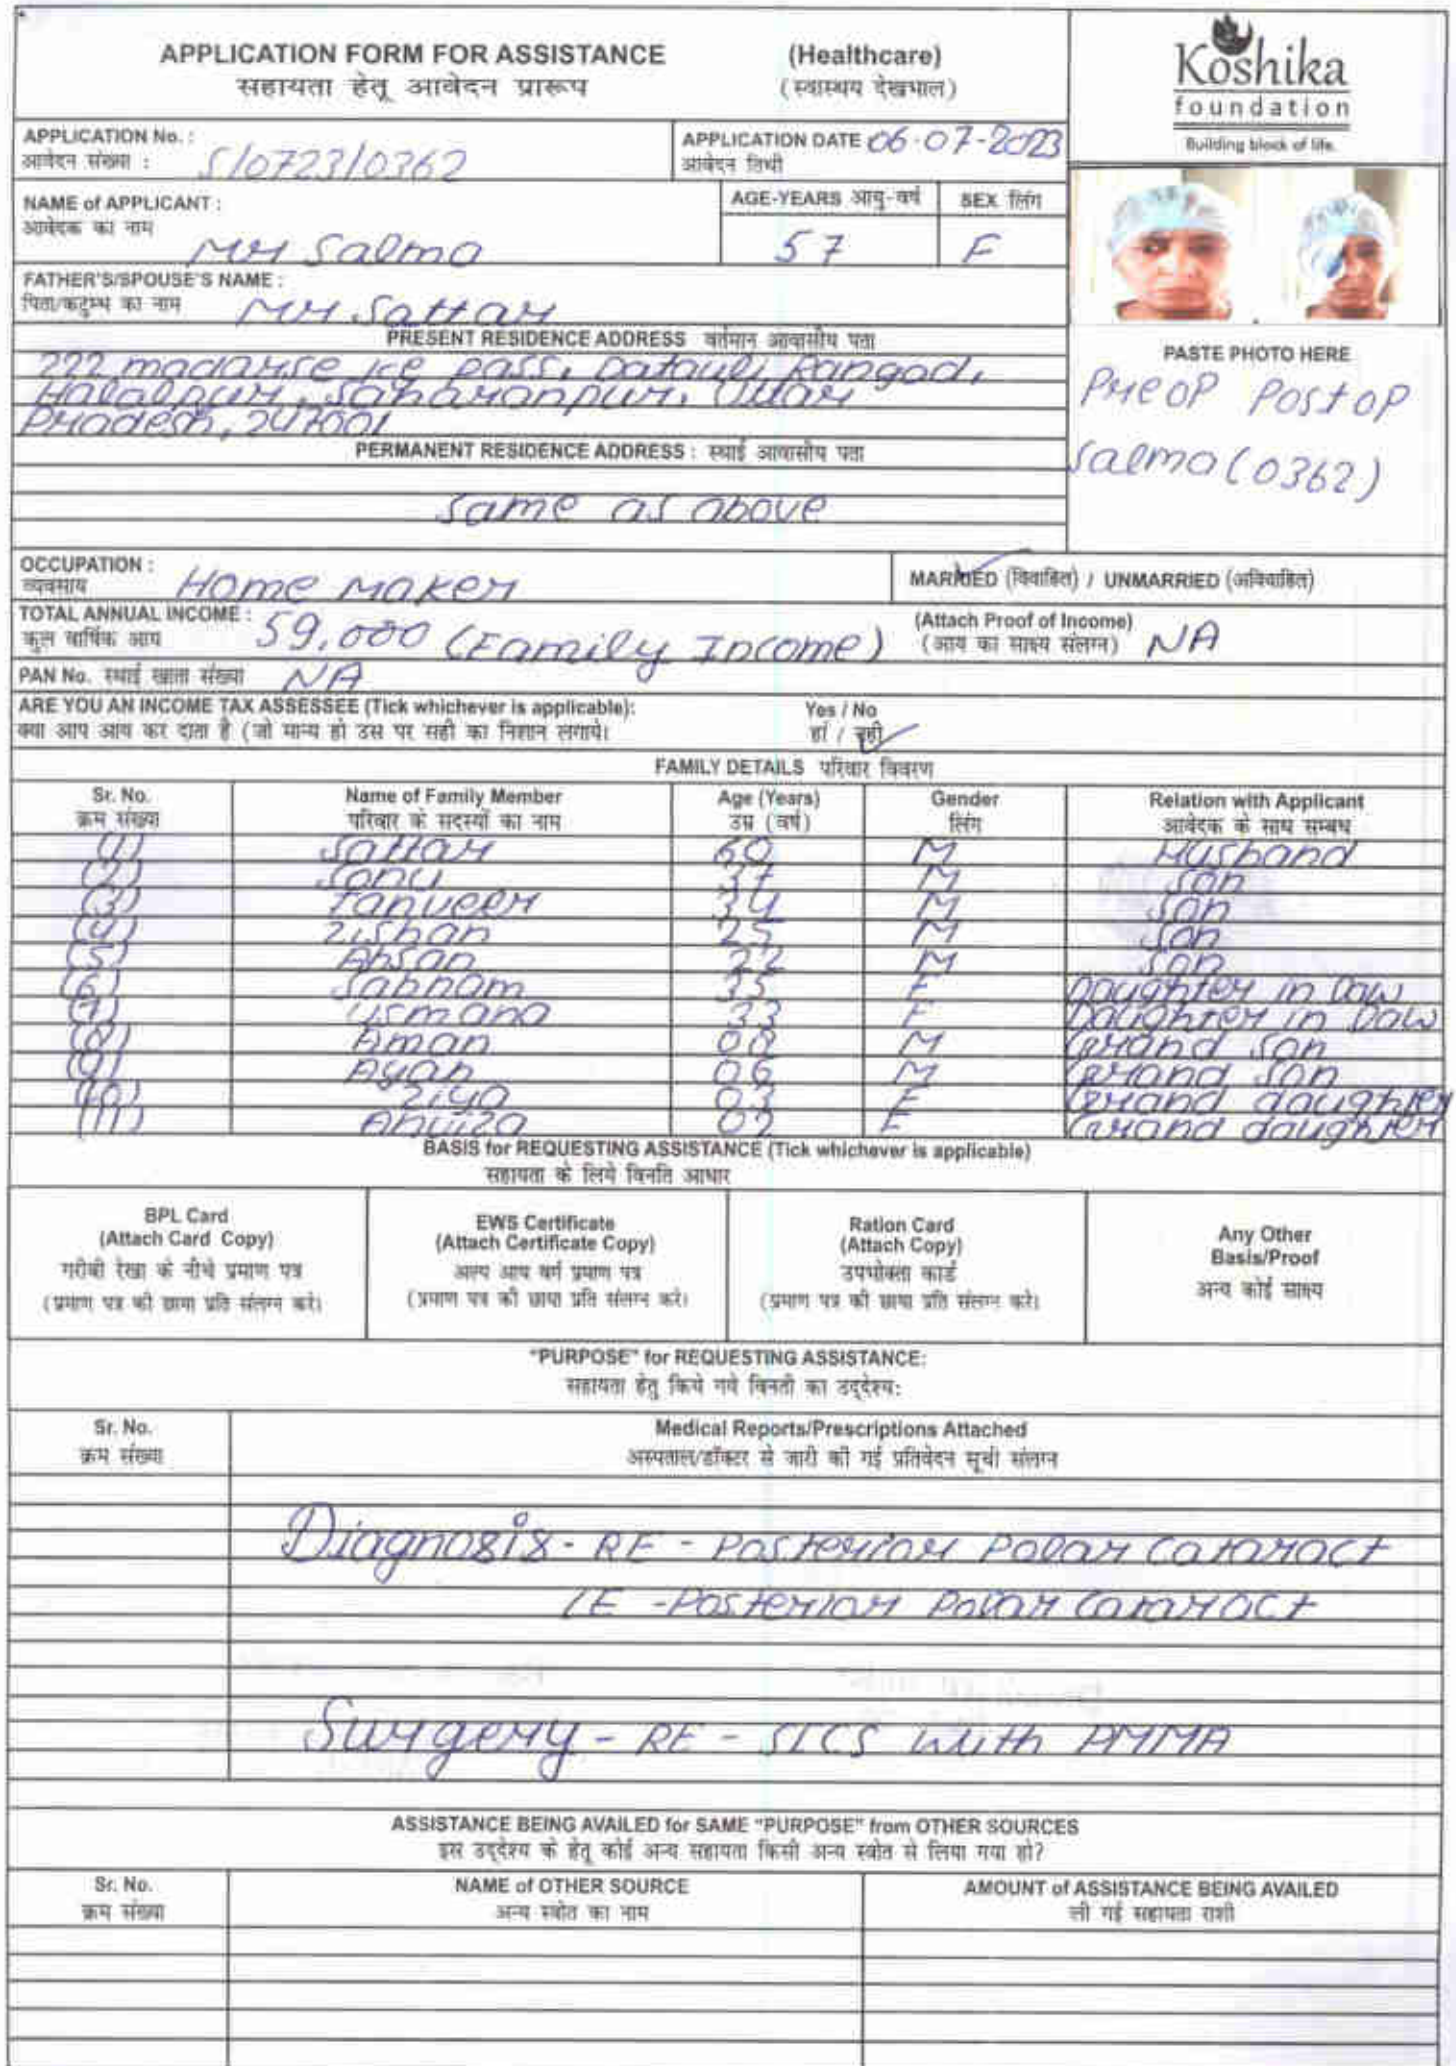 APPLICATION FORM FOR ASSISTANCE (Healthcare)
सहायता हेतू आवेदन प्रारूप (स्वास्थय देखभाल)
Koshika
foundation
Building block of life.
APPLICATION No. :
आवेदन संख्या : S/0723/0362
APPLICATION DATE 06-07-2023
आवेदन तिथी
NAME of APPLICANT :
आवेदक का नाम
Mr Salma
AGE-YEARS आयु-वर्ष
57
SEX लिंग
F
FATHER'S/SPOUSE'S NAME :
पिता/कटुम्भ का नाम Mr Sattar
PRESENT RESIDENCE ADDRESS वर्तमान आवासीय पता
222 madarse ke pass, Datauli Rangad,
Halalpur, Saharanpur, Uttar
Pradesh, 247001
PERMANENT RESIDENCE ADDRESS : स्थाई आवासीय पता
Same as above
PASTE PHOTO HERE
PreOP PostOP
Salma (0362)
OCCUPATION :
व्यवसाय Home Maker
MARRIED (विवाहित) / UNMARRIED (अविवाहित)
TOTAL ANNUAL INCOME :
कुल वार्षिक आय 59,000 (Family Income)
(Attach Proof of Income)
(आय का साक्ष्य संलग्न) NA
PAN No. स्थाई खाता संख्या NA
ARE YOU AN INCOME TAX ASSESSEE (Tick whichever is applicable): Yes / No
क्या आप आय कर दाता है (जो मान्य हो उस पर सही का निशान लगाये। हां / नही
FAMILY DETAILS परिवार विवरण
Sr. No. Name of Family Member Age (Years) Gender Relation with Applicant
क्रम संख्या परिवार के सदस्यों का नाम उम्र (वर्ष) लिंग आवेदक के साथ सम्बध
(1) Sattar 60 M Husband
(2) Sonu 37 M Son
(3) Tanveer 34 M Son
(4) Zishan 25 M Son
(5) Ahsan 22 M Son
(6) Sabnam 35 F Daughter in Law
(7) Usmana 33 F Daughter in Law
(8) Aman 08 M Grand Son
(9) Ayan 06 M Grand Son
(10) Ziya 03 F Grand daughter
(11) 02 F Grand daughter
BASIS for REQUESTING ASSISTANCE (Tick whichever is applicable)
सहायता के लिये विनति आधार
BPL Card
(Attach Card Copy)
गरीबी रेखा के नीचे प्रमाण पत्र
(प्रमाण पत्र की छाया प्रति संलग्न करे।
EWS Certificate
(Attach Certificate Copy)
अल्प आय वर्ग प्रमाण पत्र
(प्रमाण पत्र की छाया प्रति संलग्न करे।
Ration Card
(Attach Copy)
उपभोक्ता कार्ड
(प्रमाण पत्र की छाया प्रति संलग्न करे।
Any Other
Basis/Proof
अन्य कोई साक्ष्य
"PURPOSE" for REQUESTING ASSISTANCE:
सहायता हेतु किये गये विनती का उद्देश्य:
Sr. No. Medical Reports/Prescriptions Attached
क्रम संख्या अस्पताल/डॉक्टर से जारी की गई प्रतिवेदन सूची संलग्न
Diagnosis - RE - Posterior Polar Cataract
LE - Posterior Polar Cataract
Surgery - RE - SICS with PMMA
ASSISTANCE BEING AVAILED for SAME "PURPOSE" from OTHER SOURCES
इस उद्देश्य के हेतू कोई अन्य सहायता किसी अन्य स्त्रोत से लिया गया हो?
Sr. No. NAME of OTHER SOURCE AMOUNT of ASSISTANCE BEING AVAILED
क्रम संख्या अन्य स्त्रोत का नाम ली गई सहायता राशी